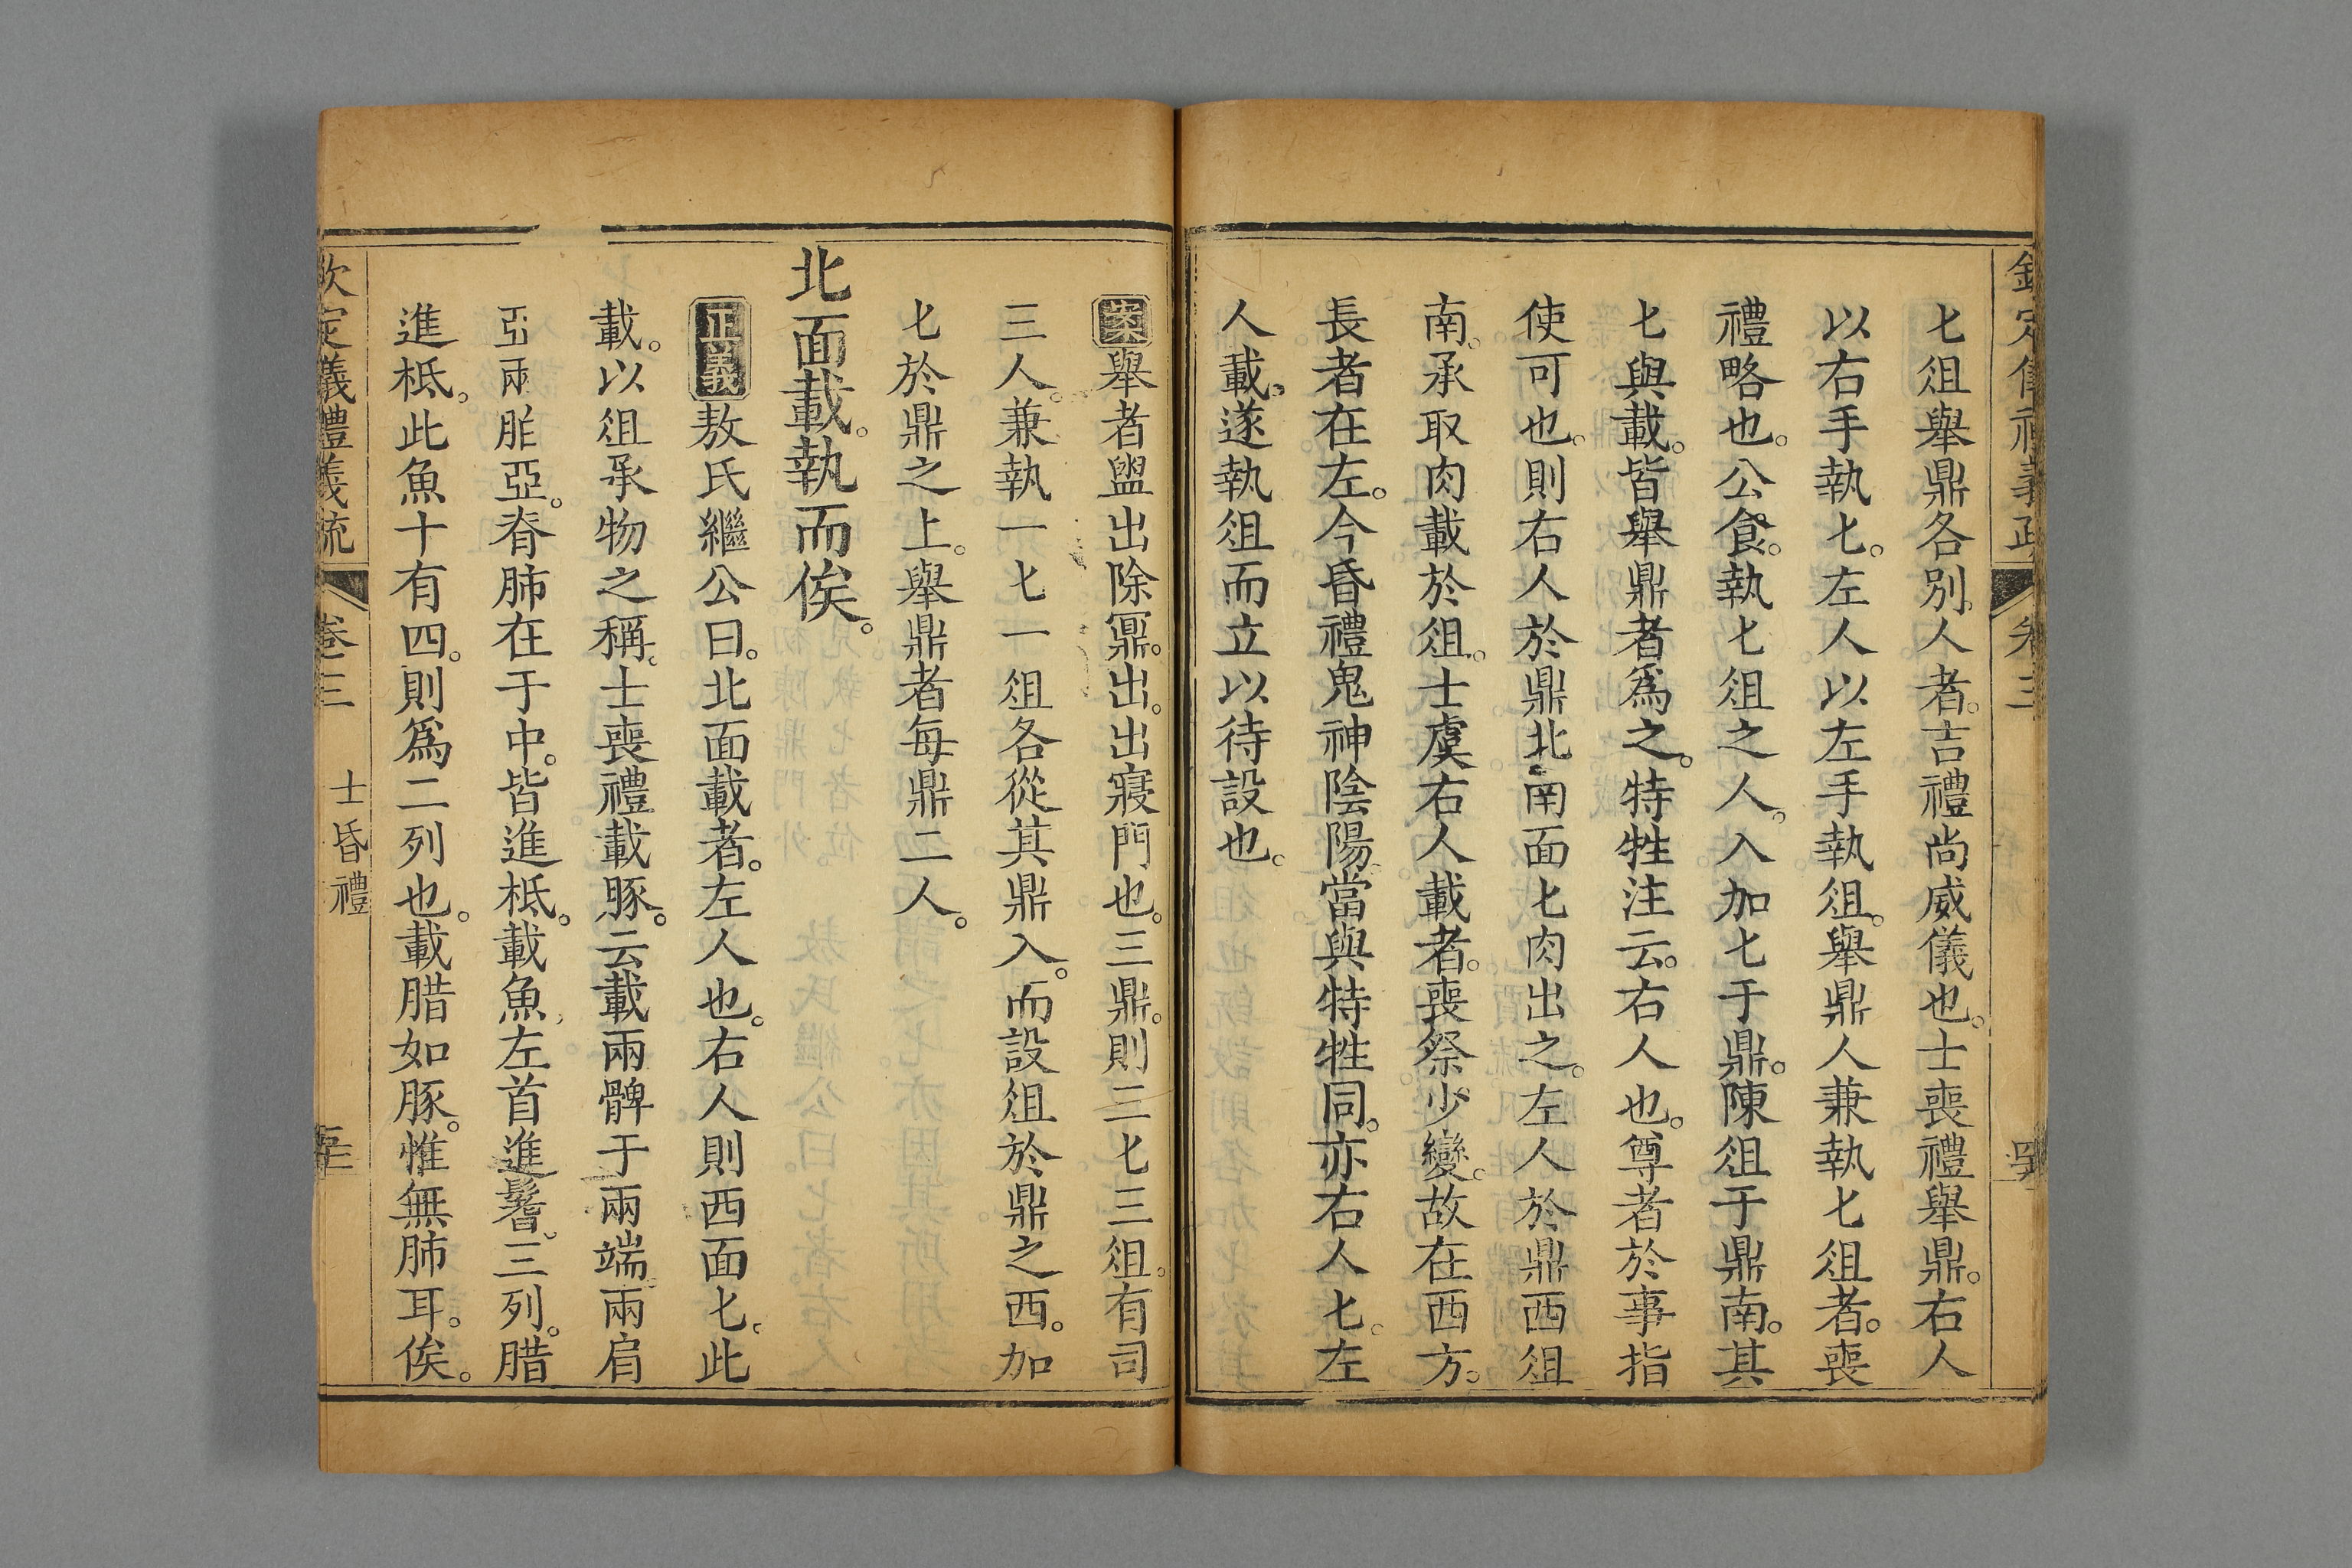 欽定儀禮義疏 卷三
七俎舉鼎各別人者。吉禮尚威儀也。士喪禮舉鼎。右人
以右手執匕。左人以左手執俎。舉鼎人兼執匕俎者。喪
禮略也。公食。執匕俎之人。入加匕于鼎。陳俎于鼎南。其
匕與載。皆舉鼎者爲之。特牲注云。右人也。尊者於事指
使可也。則右人於鼎北。南面匕肉出之。左人於鼎西俎
南。承取肉載於俎。士虞右人載者。喪祭少變。故在西方。
長者在左。今昏禮鬼神陰陽。當與特牲同。亦右人匕。左
人載。遂執俎而立以待設也。
案舉者盥出除鼏。出。出寢門也。三鼎。則三匕三俎。有司
三人。兼執一匕一俎各從其鼎入。而設俎於鼎之西。加
匕於鼎之上。舉鼎者每鼎二人。
北面載。執而俟。
正義敖氏繼公曰。北面載者。左人也。右人則西面匕。此
載。以俎承物之稱。士喪禮載豚。云載兩髀于兩端兩肩
亞兩胉亞。脊肺在于中。皆進柢。載魚。左首進鬐。三列。腊
進柢。此魚十有四。則爲二列也。載腊如豚。惟無肺耳。俟。
欽定儀禮義疏 卷三 士昏禮